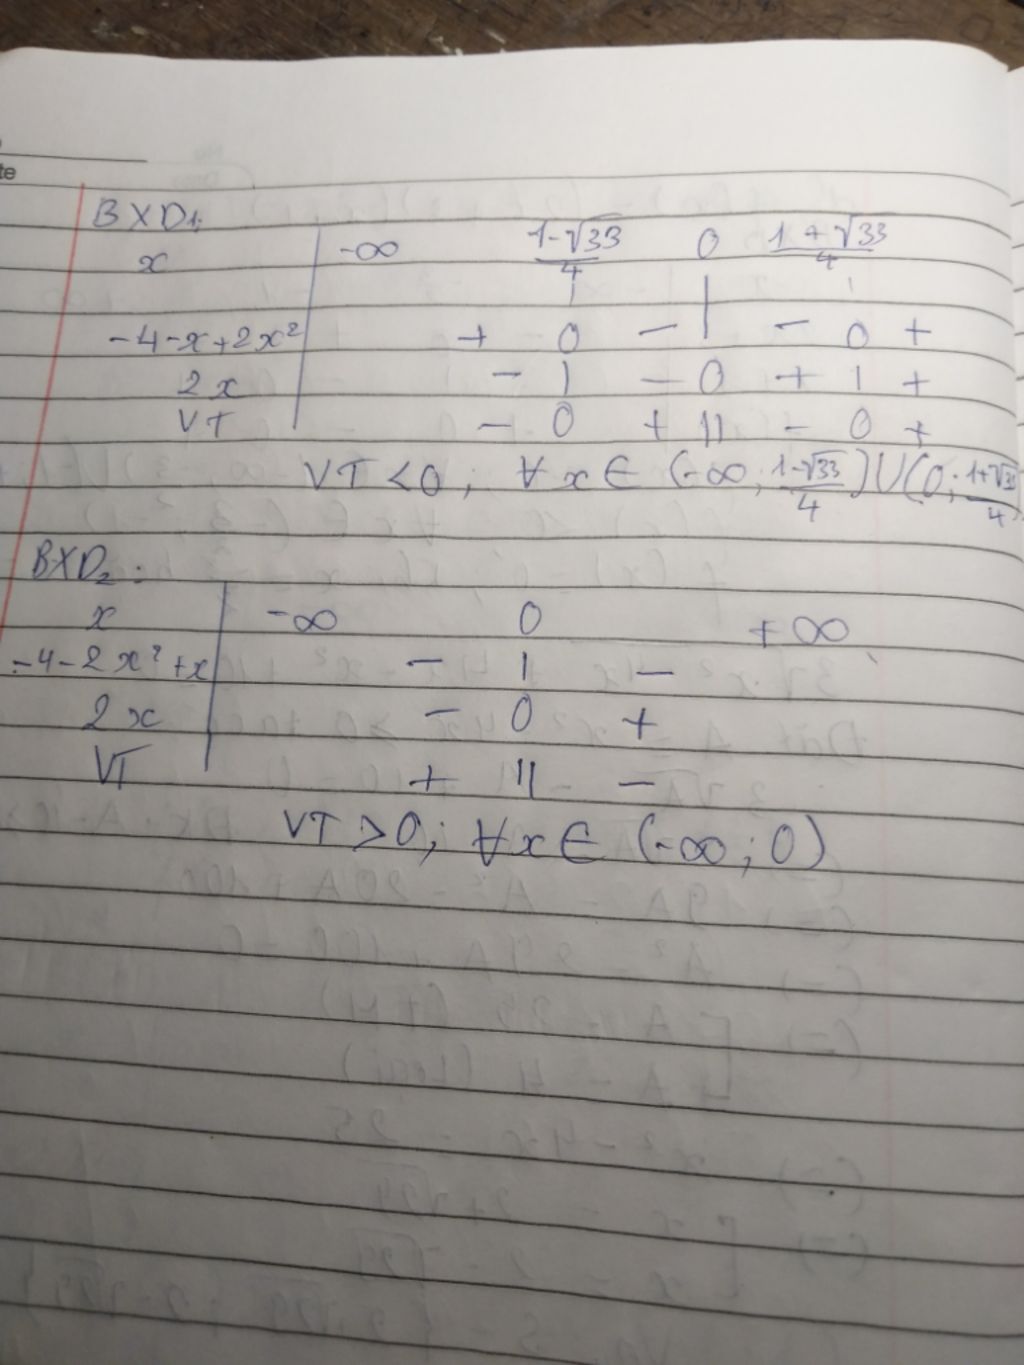 te
BXD1:
x -∞ 1-√33/4 0 1+√33/4
-4-x+2x² + 0 - | - 0 +
2x - | - 0 + | +
VT - 0 + || - 0 +
VT < 0; ∀x∈ (-∞; 1-√33/4) ∪ (0; 1+√33/4
BXD2:
x -∞ 0 +∞
-4-2x²+x - | -
2x - 0 +
VT + || -
VT > 0; ∀x∈ (-∞; 0)